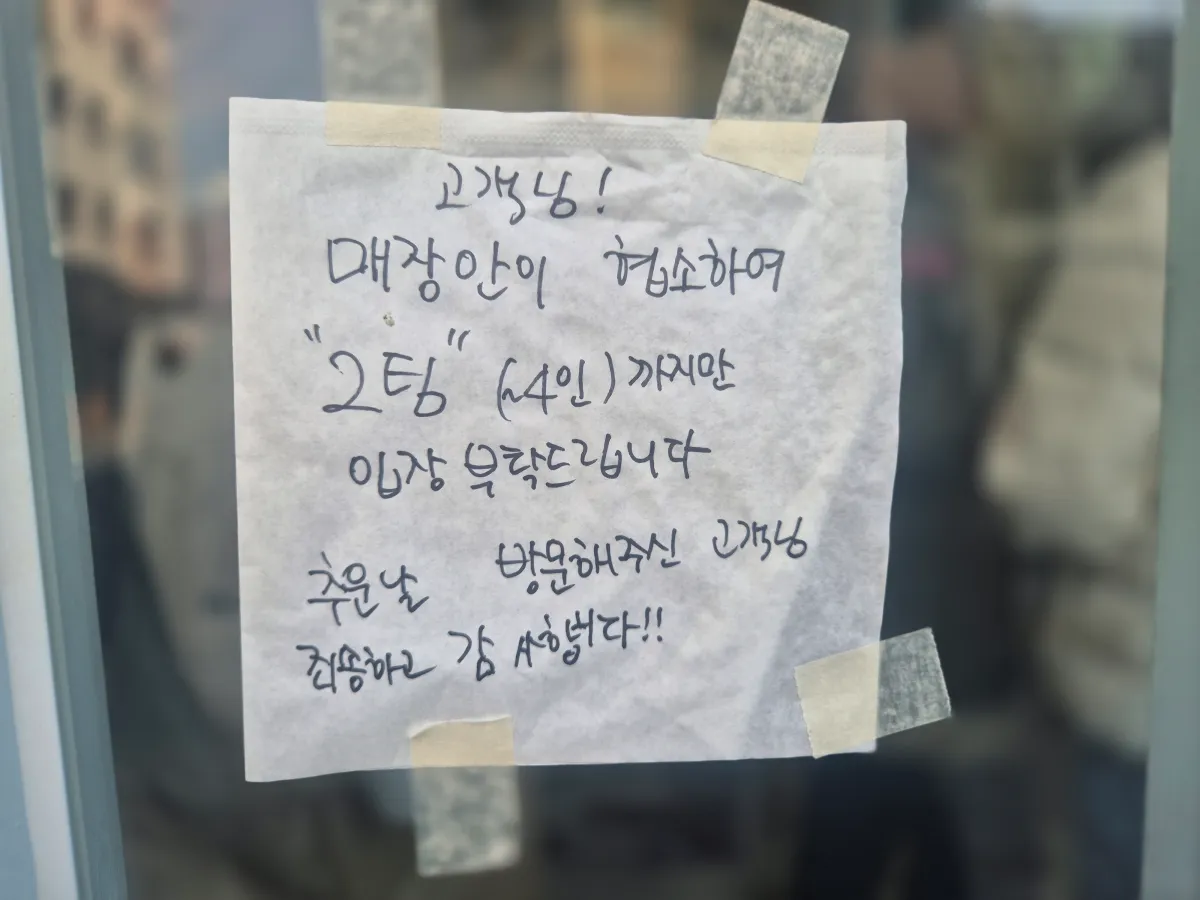 고객님!
매장안이 협소하여
"2팀" (~4인) 까지만
입장 부탁드립니다
추운날 방문해주신 고객님
죄송하고 감사합니다!!